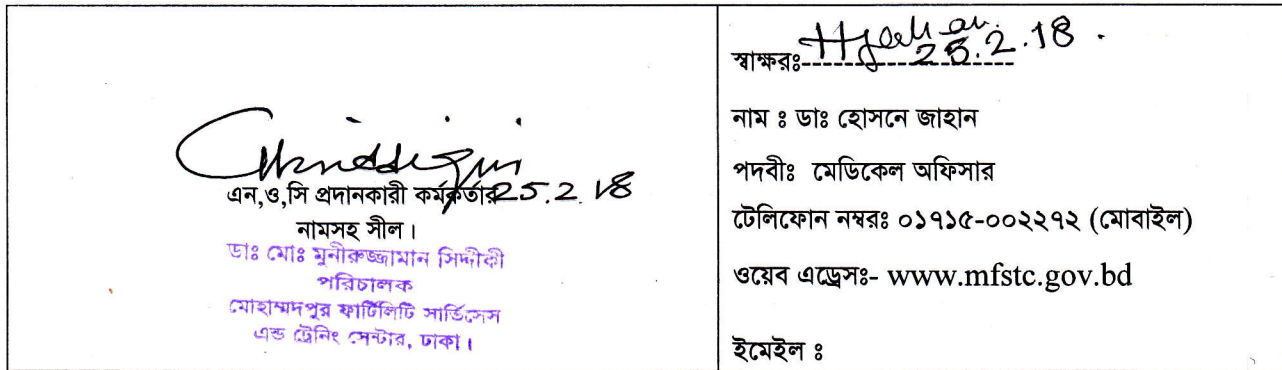 25.2.18
এন,ও,সি প্রদানকারী কর্মকর্তার
নামসহ সীল।
ডাঃ মোঃ মুনীরুজ্জামান সিদ্দীকী
পরিচালক
মোহাম্মদপুর ফার্টিলিটি সার্ভিসেস
এন্ড ট্রেনিং সেন্টার, ঢাকা।
স্বাক্ষরঃ-------------------- 25.2.18.
নাম ঃ ডাঃ হোসনে জাহান
পদবীঃ মেডিকেল অফিসার
টেলিফোন নম্বরঃ ০১৭১৫-০০২২৭২ (মোবাইল)
ওয়েব এড্রেসঃ- www.mfstc.gov.bd
ইমেইল ঃ